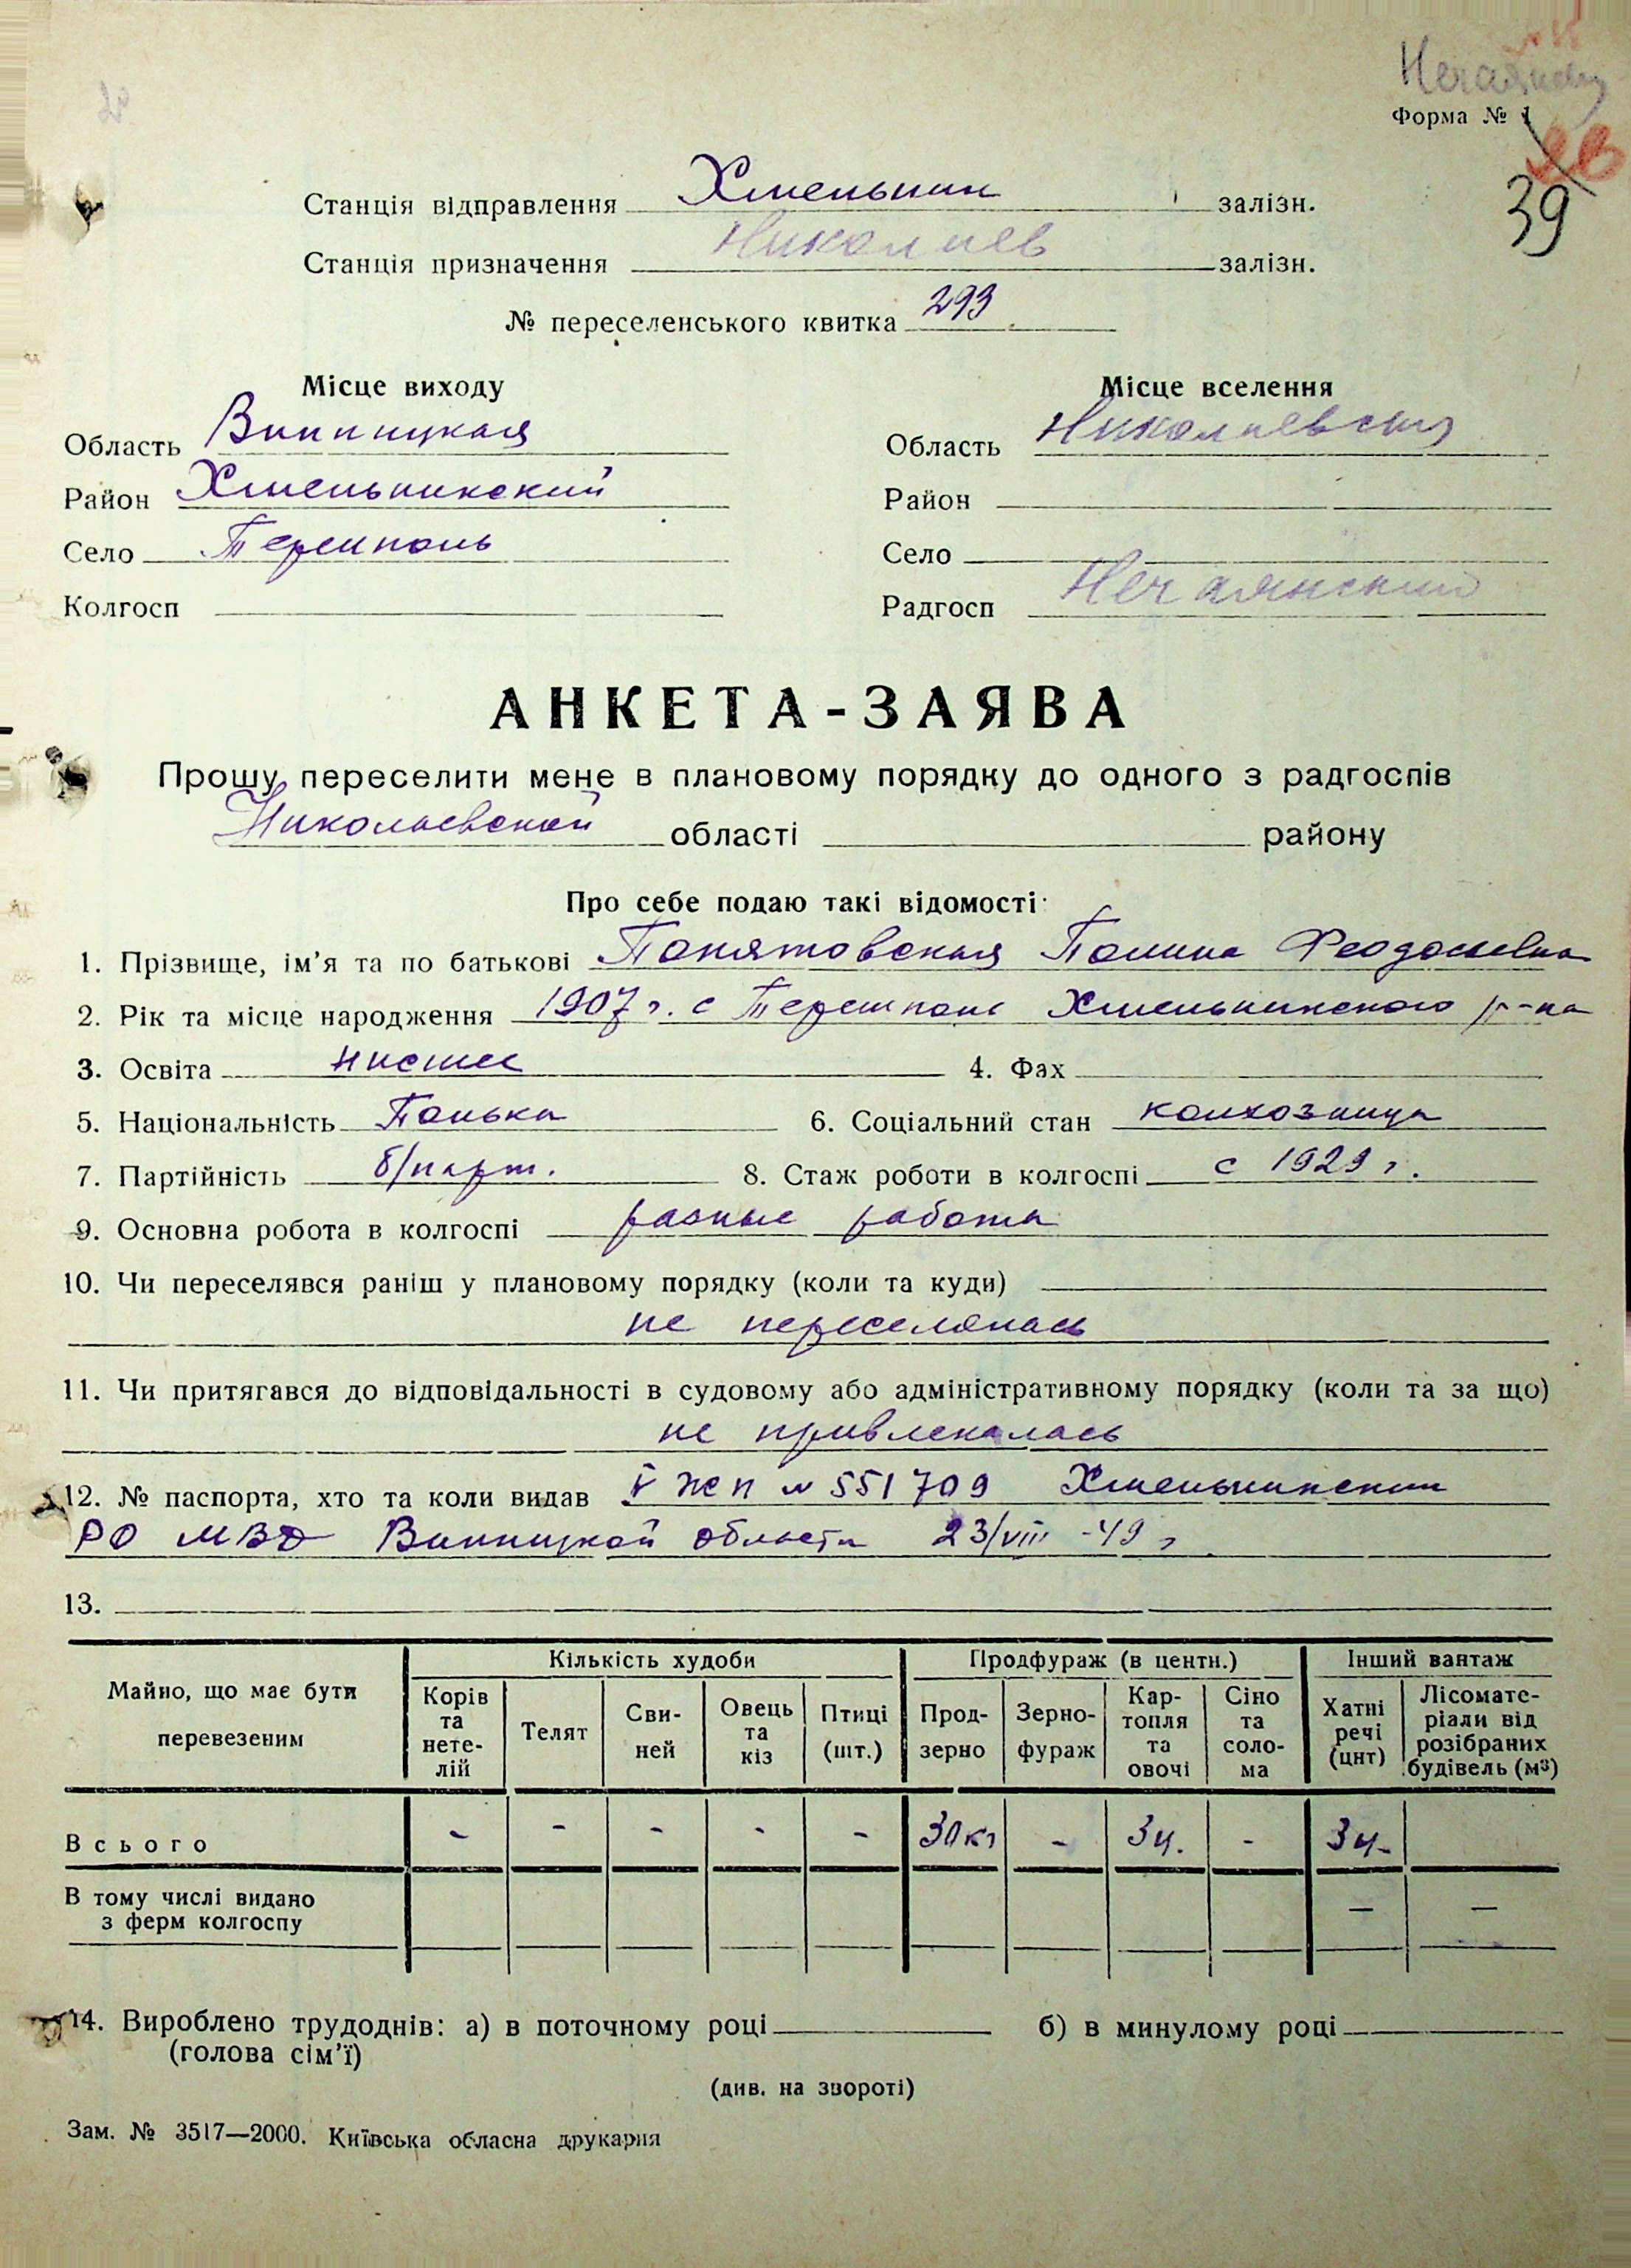 Форма № 1
39
Станція відправлення Хмельник залізн.
Станція призначення Николаев залізн.
№ переселенського квитка 293
Місце виходу Місце вселення
Область Винницкая Область Николаевская
Район Хмельникский Район
Село Терешполь Село
Колгосп Радгосп Нечаянский
АНКЕТА-ЗАЯВА
Прошу переселити мене в плановому порядку до одного з радгоспів
Николаевской області району
Про себе подаю такі відомості:
1. Прізвище, ім’я та по батькові Понятовская Полина Феодосиевна
2. Рік та місце народження 1907 г. с Терешполь Хмельникского р-на
3. Освіта 4. Фах
5. Національність Полька 6. Соціальний стан колхозница
7. Партійність б/парт. 8. Стаж роботи в колгоспі с 1929 г.
9. Основна робота в колгоспі разные работы
10. Чи переселявся раніш у плановому порядку (коли та куди)
не переселялась
11. Чи притягався до відповідальності в судовому або адміністративному порядку (коли та за що)
не привлекалась
12. № паспорта, хто та коли видав V ЖП № 551709 Хмельникским
РО МВД Винницкой области 23/VIII -49 г
13.
Майно, що має бути перевезеним Кількість худоби Продфураж (в центн.) Інший вантаж
Корів та нете-лій Телят Сви-ней Овець та кіз Птиці (шт.) Прод-зерно Зерно-фураж Кар-топля та овочі Сіно та соло-ма Хатні речі (цнт) Лісомате-ріали від розібраних будівель (м³)
Всього - - - - - 30 кг - 3ц. - 3ц-
В тому числі видано — —
з ферм колгоспу
14. Вироблено трудоднів: а) в поточному році б) в минулому році
(голова сім’ї)
(див. на звороті)
Зам. № 3517—2000. Київська обласна друкарня